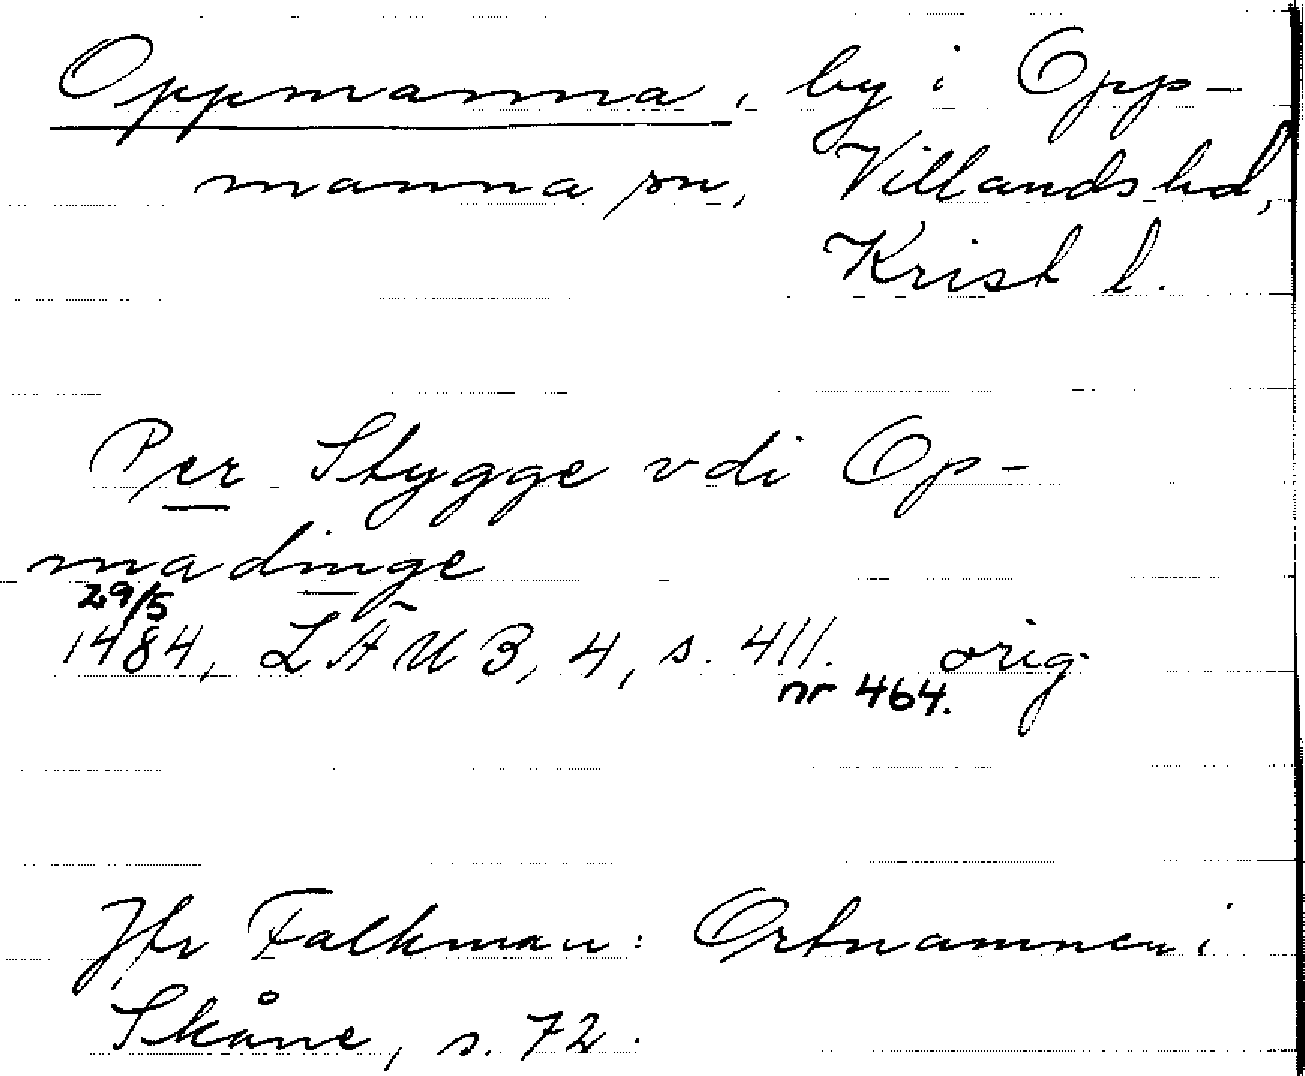 Oppmanna, by i Opp-
manna sn, Villands hd,
Krist l.
Per Stygge vdi Op-
madinge
29/5
1484, LÄUB, 4, s. 411. orig
nr 464.
Jfr Falkman: Ortnamnen i
Skåne, s. 72.